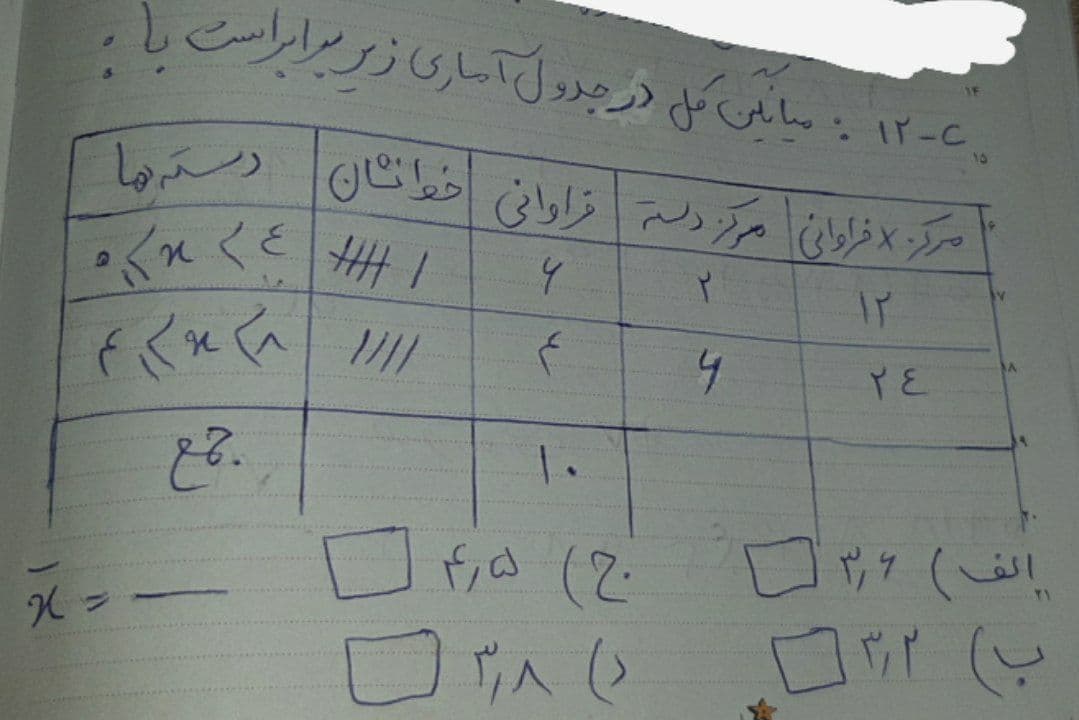 ۱۲-C : میانگین کل در جدول آماری زیر برابر است با :
دسته‌ها | خط‌نشان | فراوانی | مرکز دسته | مرکز × فراوانی
۰ ⩽ x < ٤ | //// / | ۶ | ۲ | ۱۲
۴ ⩽ x < ۸ | //// | ۴ | ۶ | ۲٤
جمع | ۱۰
الف) ۳٫۶ ج) ۴٫۵
x̄ = —
ب) ۳٫۲ د) ۳٫۸
۱۴
۱۵
۱۷
۱۸
۱۹
۲۰
۲۱